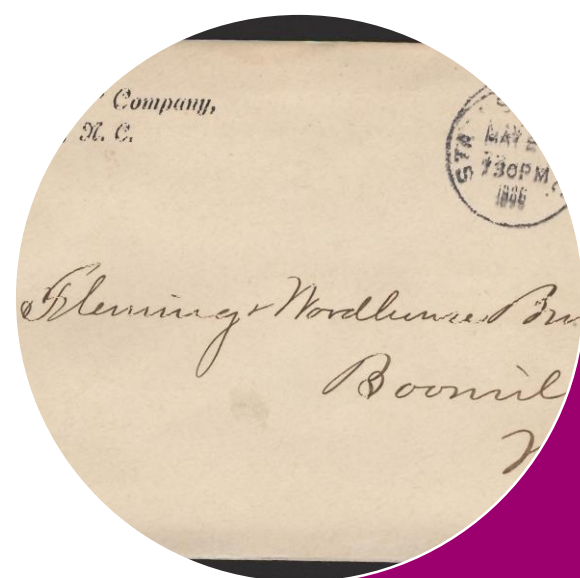 Company,
N. C.
STA
MAY
730PM
1896
Fleming & Wordhouse
Boonvil